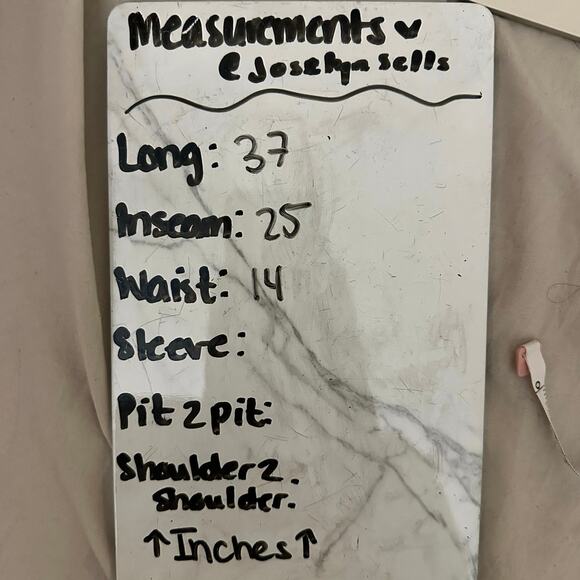 Measurements ♥
@Joselyn sells
Long: 37
Inseam: 25
Waist: 14
Sleeve:
Pit 2 pit:
Shoulder 2
Shoulder:
↑Inches↑